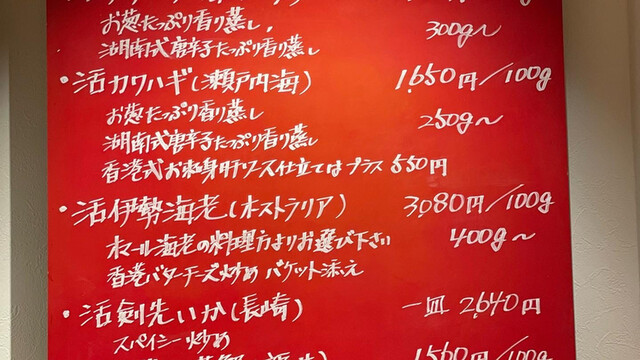 お葱たっぷり香り蒸し 300g〜
湖南式唐辛子たっぷり香り蒸し
・活カワハギ(瀬戸内海) 1,650円/100g
お葱たっぷり香り蒸し 250g〜
湖南式唐辛子たっぷり香り蒸し
香港式お刺身肝ソース仕立てはプラス 550円
・活伊勢海老(オーストラリア) 3,080円/100g
オマール海老の料理方よりお選び下さい 400g〜
香港バターチーズ炒め バケット添え
・活剣先いか(長崎) 一皿 2,640円
スパイシー炒め
1,560円/100g